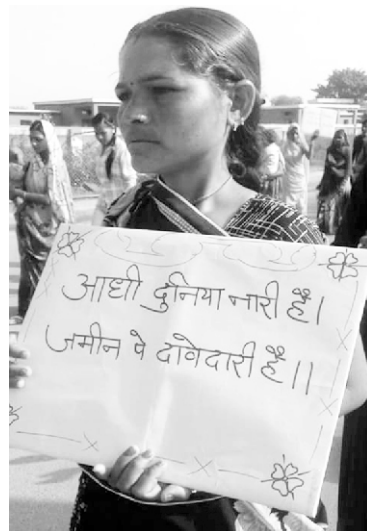 आधी दुनिया नारी हैं।
जमीन पे दावेदारी हैं।।